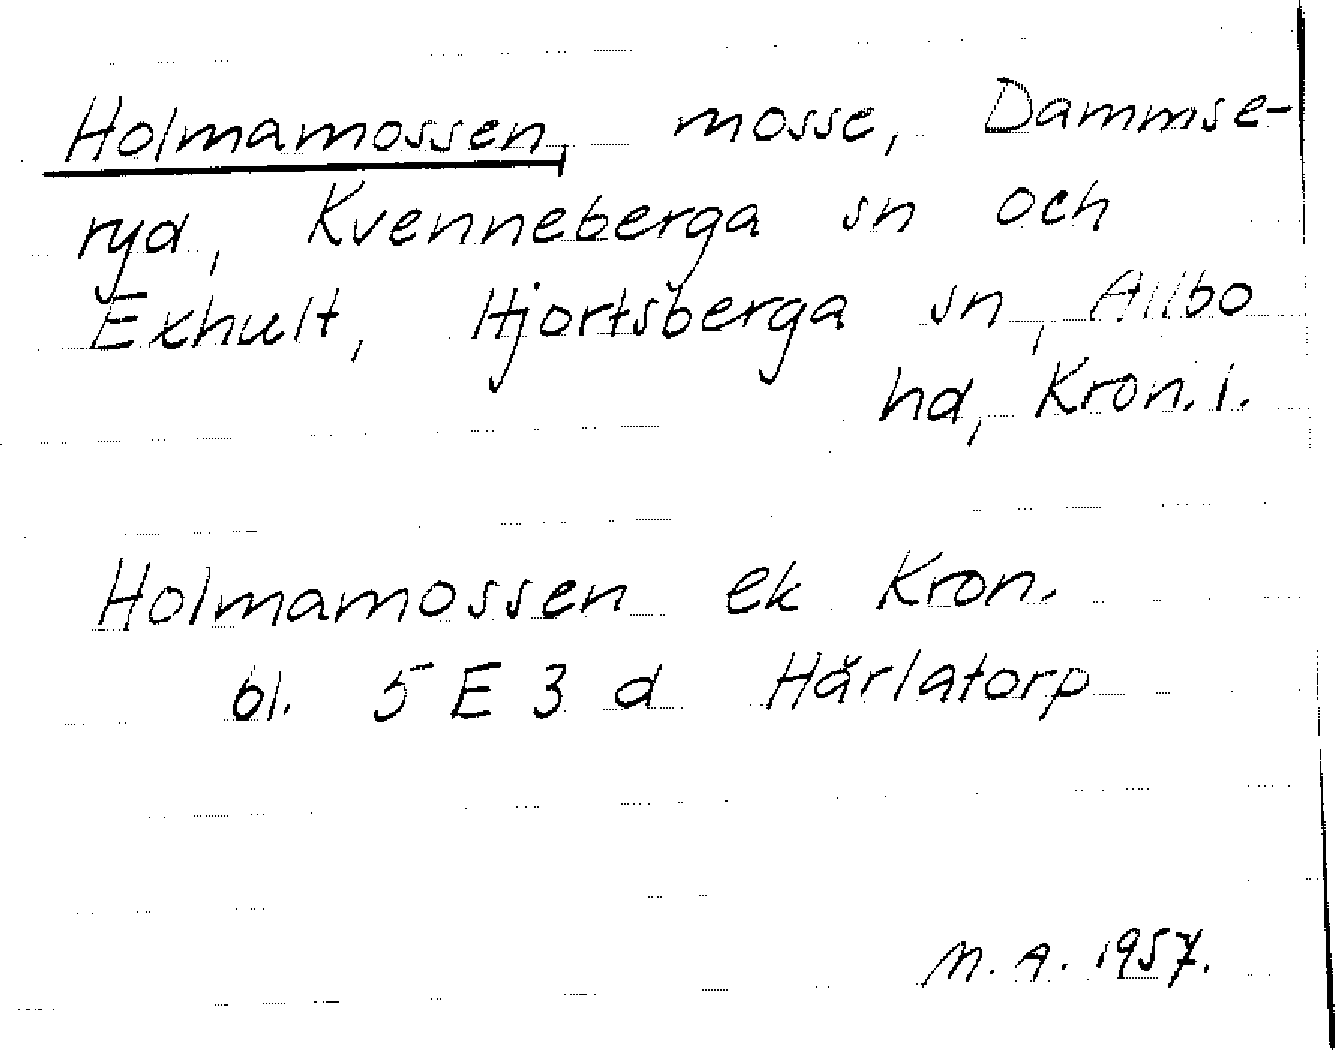 Holmamossen, mosse, Dammse-
ryd, Kvenneberga sn och
Exhult, Hjortsberga sn, Allbo
hd, Kron. l.
Holmamossen ek Kron.
bl. 5 E 3 d Härlatorp
M. A. 1957.